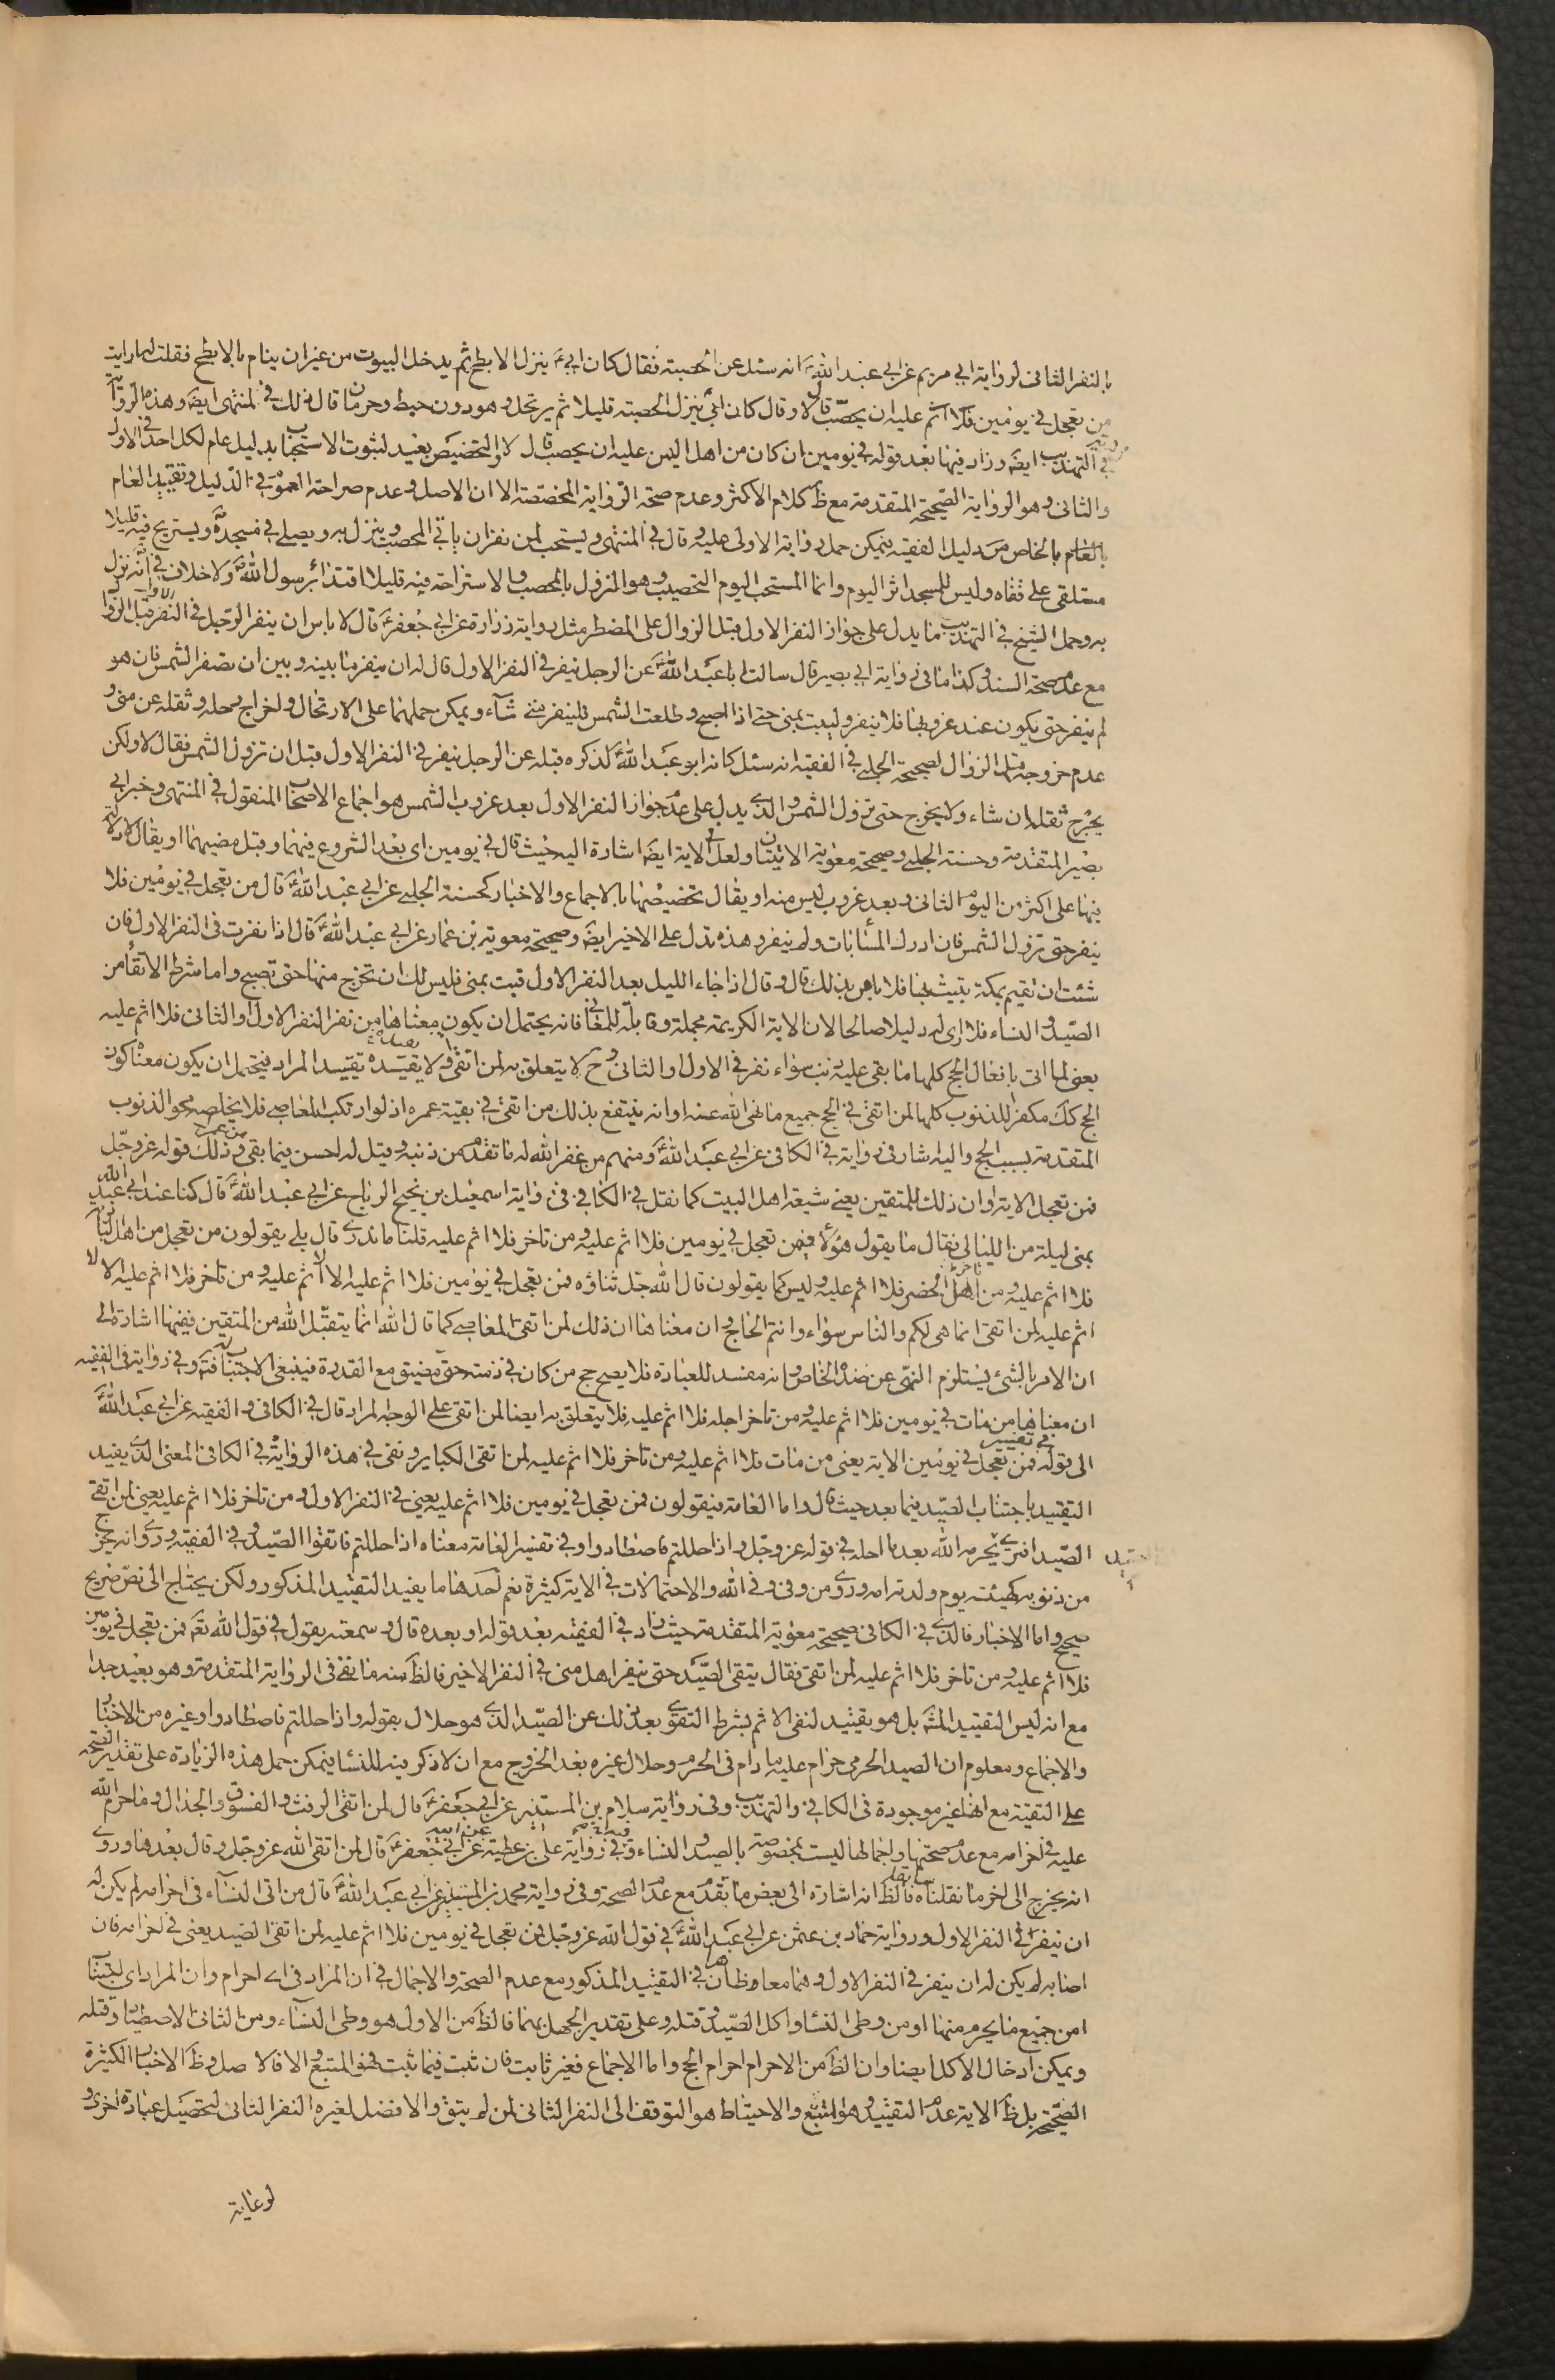 بالنفر الثانى لرواية ابى مريم عن ابى عبد الله ع انه سئل عن الحصبة فقال كان ابى ع ينزل الابطح ثم يدخل البيوت من غير ان ينام بالابطح فقلت له ارايت
من تعجل فى يومين فلا اثم عليه ان يحصب قال لا وقال كان ابى ينزل الحصبة قليلا ثم يرتحل وهو دون خبط وحرمان قال ذلك فى المنتهى ايضا وهذه الرواية
فى التهذيب ايضا وزاد فيها بعد قوله فى يومين ان كان من اهل اليمن عليه ان يحصب قال لا والتخصيص بعيد لثبوت الاستحباب بدليل عام لكل احد فى الاول
والثانى وهو الرواية الصحيحة المتقدمة مع ظ كلام الاكثر وعدم صحة الرواية المخصصة الا ان الاصل وعدم صراحة العموم فى الدليل وتقييد العام
بالخاص من دليل الفقيه يتمكن حمل رواية الاولى عليه وقال فى المنتهى ويستحب لمن نفر ان ياتى المحصب وينزل به ويصلى فى مسجده ويستريح فيه قليلا
مستلقى على قفاه وليس للمسجد اثر اليوم وانما المستحب اليوم التحصيب وهو النزول بالمحصب والاستراحة فيه قليلا اقتداء برسول الله ص ولا خلاف فى انه نزل
به وحمل الشيخ فى التهذيب ما يدل على جواز النفر الاول قبل الزوال على المضطر مثل رواية زرارة عن ابى جعفر ع قال لا باس ان ينفر الرجل فى النفر الاول قبل الزوال
مع عدم صحة السند وكذا ما فى رواية ابى بصير قال سالت ابا عبد الله ع عن الرجل ينفر فى النفر الاول قال له ان ينفر ما بينه وبين ان تصفر الشمس فان هو
لم ينفر حتى يكون عند غروبها فلا ينفر وليبت بمنى حتى اذا اصبح وطلعت الشمس فلينفر متى شاء ويمكن حملهما على الارتحال واخراج رحله وثقله عن منى و
عدم خروجه قبل الزوال لصحيحة الحلبى فى الفقيه انه سئل كانه ابو عبد الله ع لذكره قبله عن الرجل ينفر فى النفر الاول قبل ان تزول الشمس فقال لا ولكن
يخرج ثقله ان شاء ولا يخرج حتى تزول الشمس والذى يدل على عدم جواز النفر الاول بعد غروب الشمس هو اجماع الاصحاب المنقول فى المنتهى وخبر ابى
بصير المتقدمة وحسنة الحلبى وصحيحة معوية الاتيتان ولعل فى الاية ايضا اشارة اليه حيث قال فى يومين اى بعد الشروع فيهما وقبل مضيهما او يقال لا دلالة
فيها على اكثر من اليوم الثانى وبعد غروب ليس منه او يقال تخصيصها بالاجماع والاخبار كحسنة الحلبى عن ابى عبد الله ع قال من تعجل فى يومين فلا
ينفر حتى تزول الشمس فان ادركه المساء بات ولم ينفر وهذه تدل على الاخير ايضا وصحيحة معوية بن عمار عن ابى عبد الله ع قال اذا نفرت فى النفر الاول فان
شئت ان تقيم بمكة تبيت بها فلا باس بذلك قال وقال اذا جاء الليل بعد النفر الاول فبت بمنى فليس لك ان تخرج منها حتى تصبح واما شرط الاتقاء من
الصيد والنساء فلا ارى له دليلا صالحا لان الاية الكريمة مجملة وقابلة للمعانى فانه يحتمل ان يكون معناها من نفر النفر الاول والثانى فلا اثم عليه
يعنى لما اتى بافعال الحج كلها ما بقى عليه ذنب سواء نفر فى الاول والثانى وح لا يتعلق به لمن اتقى ولا يقيده تقييد المراد فيحتمل ان يكون معناه كون
الحج كك مكفرا للذنوب كلها لمن اتقى فى الحج جميع ما نهى الله عنه او انه ينتفع بذلك من اتقى فى بقية عمره اذ لو ارتكب المعاصى فلا يخلصه محو الذنوب
المتقدمة بسبب الحج واليه اشار فى رواية فى الكافى عن ابى عبد الله ع ومنهم من غفر الله له ما تقدم من ذنبه وقيل له احسن فيما بقى من عمرك وذلك قوله عز وجل
فمن تعجل الاية وان ذلك للمتقين يعنى شيعة اهل البيت كما نقل فى الكافى فى رواية اسمعيل بن نجيح الرياح عن ابى عبد الله ع قال كنا عند ابى عبد الله
بمنى ليلة من الليالى فقال ما يقول هؤلاء فيمن تعجل فى يومين فلا اثم عليه ومن تاخر فلا اثم عليه قلنا ما ندرى قال بلى يقولون من تعجل من اهل البادية
فلا اثم عليه ومن تاخر من اهل الحضر فلا اثم عليه وليس كما يقولون قال الله جل ثناؤه فمن تعجل فى يومين فلا اثم عليه الا لا اثم عليه ومن تاخر فلا اثم عليه الا لا
اثم عليه لمن اتقى انما هى لكم والناس سواء وانتم الحاج وان معناها ان ذلك لمن اتقى المعاصى كما قال الله انما يتقبل الله من المتقين ففيها اشارة الى
ان الامر بالشئ يستلزم النهى عن ضده الخاص وانه مفسد للعبادة فلا يصح حج من كان فى ذمته حق مضيق مع القدرة فينبغى الاجتناب فته وفى رواية فى الفقيه
ان معناها من مات فى يومين فلا اثم عليه ومن تاخر اجله فلا اثم عليه فلا يتعلق به ايضا لمن اتقى على الوجه المراد قال فى الكافى والفقيه عن ابى عبد الله ع
الى قوله فى تفسير فمن تعجل فى يومين الاية يعنى من مات فلا اثم عليه ومن تاخر فلا اثم عليه لمن اتقى الكباير وبقى فى هذه الرواية فى الكافى المعنى الذى يفيد
التقييد باجتناب الصيد فيما بعد حيث قال واما العامة فيقولون فمن تعجل فى يومين فلا اثم عليه يعنى فى النفر الاول ومن تاخر فلا اثم عليه يعنى لمن اتقى
الصيد افترى يحرمه الله بعد ما احله فى قوله عز وجل واذا حللتم فاصطادوا وفى تفسير العامة معناه اذا حللتم فاتقوا الصيد وفى الفقيه وروى انه يخرج
من ذنوبه كهيئته يوم ولدته امه وروى من وفى وفى الله والاحتمالات فى الاية كثيرة نعم احدها ما يفيد التقييد المذكور ولكن يحتاج الى نص صريح
صحيح واما الاخبار فالذى فى الكافى صحيحة معوية المتقدمة حيث زاد فى الفقيه بعد قوله او بعده قال وسمعته يقول فى قول الله تعه فمن تعجل فى يومين
فلا اثم عليه ومن تاخر فلا اثم عليه لمن اتقى فقال يتقى الصيد حتى ينفر اهل منى فى النفر الاخير فالظ منه ما بقى فى الرواية المتقدمة وهو بعيد جدا
مع انه ليس التقييد المش بل هو تقييد لنفى الاثم بشرط التقوى بعد ذلك عن الصيد الذى هو حلال بقوله واذا حللتم فاصطادوا وغيره من الاخبار
والاجماع ومعلوم ان الصيد الحرمى حرام عليه ما دام فى الحرم وحلال غيره بعد الخروج مع ان لا ذكر فيه للنساء فيمكن حمل هذه الزيادة على تقدير الصحة
على التقية مع انها غير موجودة فى الكافى والتهذيب وفى رواية سلام بن المستنير عن ابى جعفر ع قال لمن اتقى الرفث والفسوق والجدال وما حرم الله
عليه فى احرامه مع عدم صحتها واجمالها ليست بمخصوصة بالصيد والنساء وفى رواية على بن عطية عن ابيه عن ابى جعفر ع قال لمن اتقى الله عز وجل وقال بعدها وروى
انه يخرج الى اخر ما نقلناه سابقا فالظ انه اشارة الى بعض ما تقدم مع عدم الصحة وفى رواية محمد بن المستنير عن ابى عبد الله ع قال من اتى النساء فى احرامه لم يكن له
ان ينفر فى النفر الاول ورواية حماد بن عثمن عن ابى عبد الله ع فى قول الله عز وجل فمن تعجل فى يومين فلا اثم عليه لمن اتقى الصيد يعنى فى احرامه فان
اصابه لم يكن له ان ينفر فى النفر الاول وهما معا ظاهرتان فى التقييد المذكور مع عدم الصحة والاجمال فى ان المراد فى اى احرام وان المراد اى اجتناب
امن جميع ما يحرم منها او من وطى النساء واكل الصيد وقتله وعلى تقدير الجهل بهما فالظ من الاول هو وطى النساء ومن الثانى الاصطياد وقتله
ويمكن ادخال الاكل ايضا وان الظ من الاحرام احرام الحج واما الاجماع فغير ثابت فان ثبت فيما ثبت فهو المتبع والا فالاصل وظ الاخبار الكثيرة
الصحيحة بل ظ الاية عدم التقييد وهو المتبع والاحتياط هو التوقف الى النفر الثانى لمن لم يتق والافضل لغيره النفر الثانى لتحصيل عبادة اخرى و
لرعاية